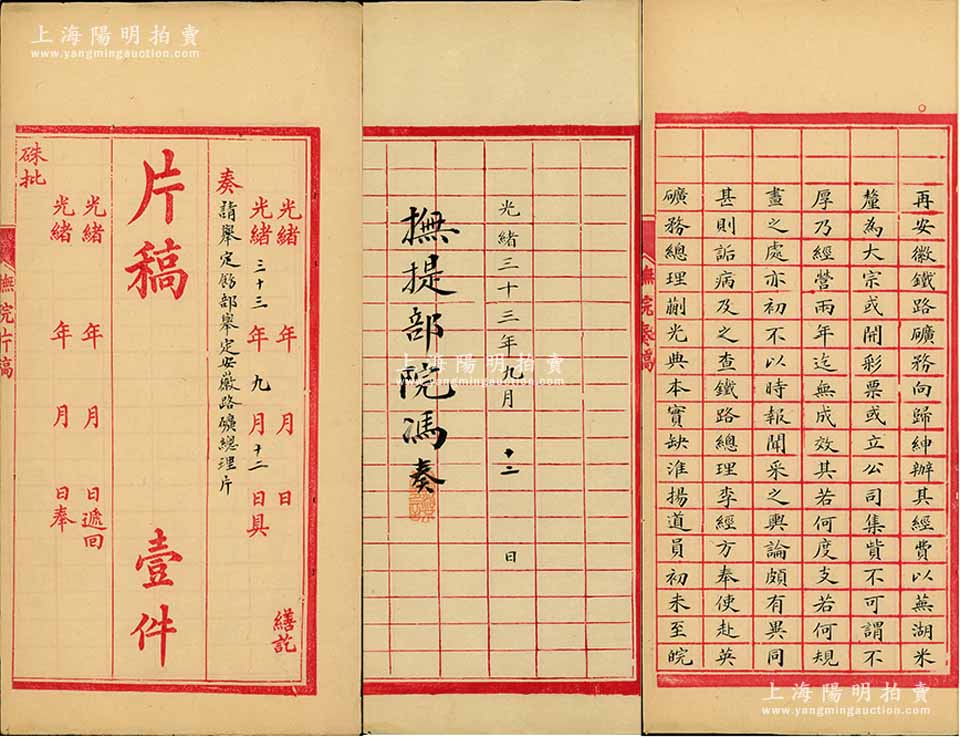 上海陽明拍賣
www.yangmingauction.com
再安徽鐵路礦務向歸紳辦其經費以蕪湖米
釐為大宗或開彩票或立公司集貲不可謂不
厚乃經營兩年迄無成效其若何度支若何規
畫之處亦初不以時報聞采之輿論頗有異同
甚則詬病及之查鐵路總理李經方奉使赴英
礦務總理蒯光典本實缺淮揚道員初未至皖
撫院奏稿
光緒三十三年九月十二日
撫提部院馮奏
上海陽明拍賣
www.yangmingauction.com
光緒 年 月 日 繕訖
光緒三十三年九月十二日具
奏請舉定飭部舉定安徽路礦總理片
片稿 壹件
光緒 年 月 日遞回
光緒 年 月 日奉
硃批
撫院片稿
上海陽明拍賣
www.yangmingauction.com